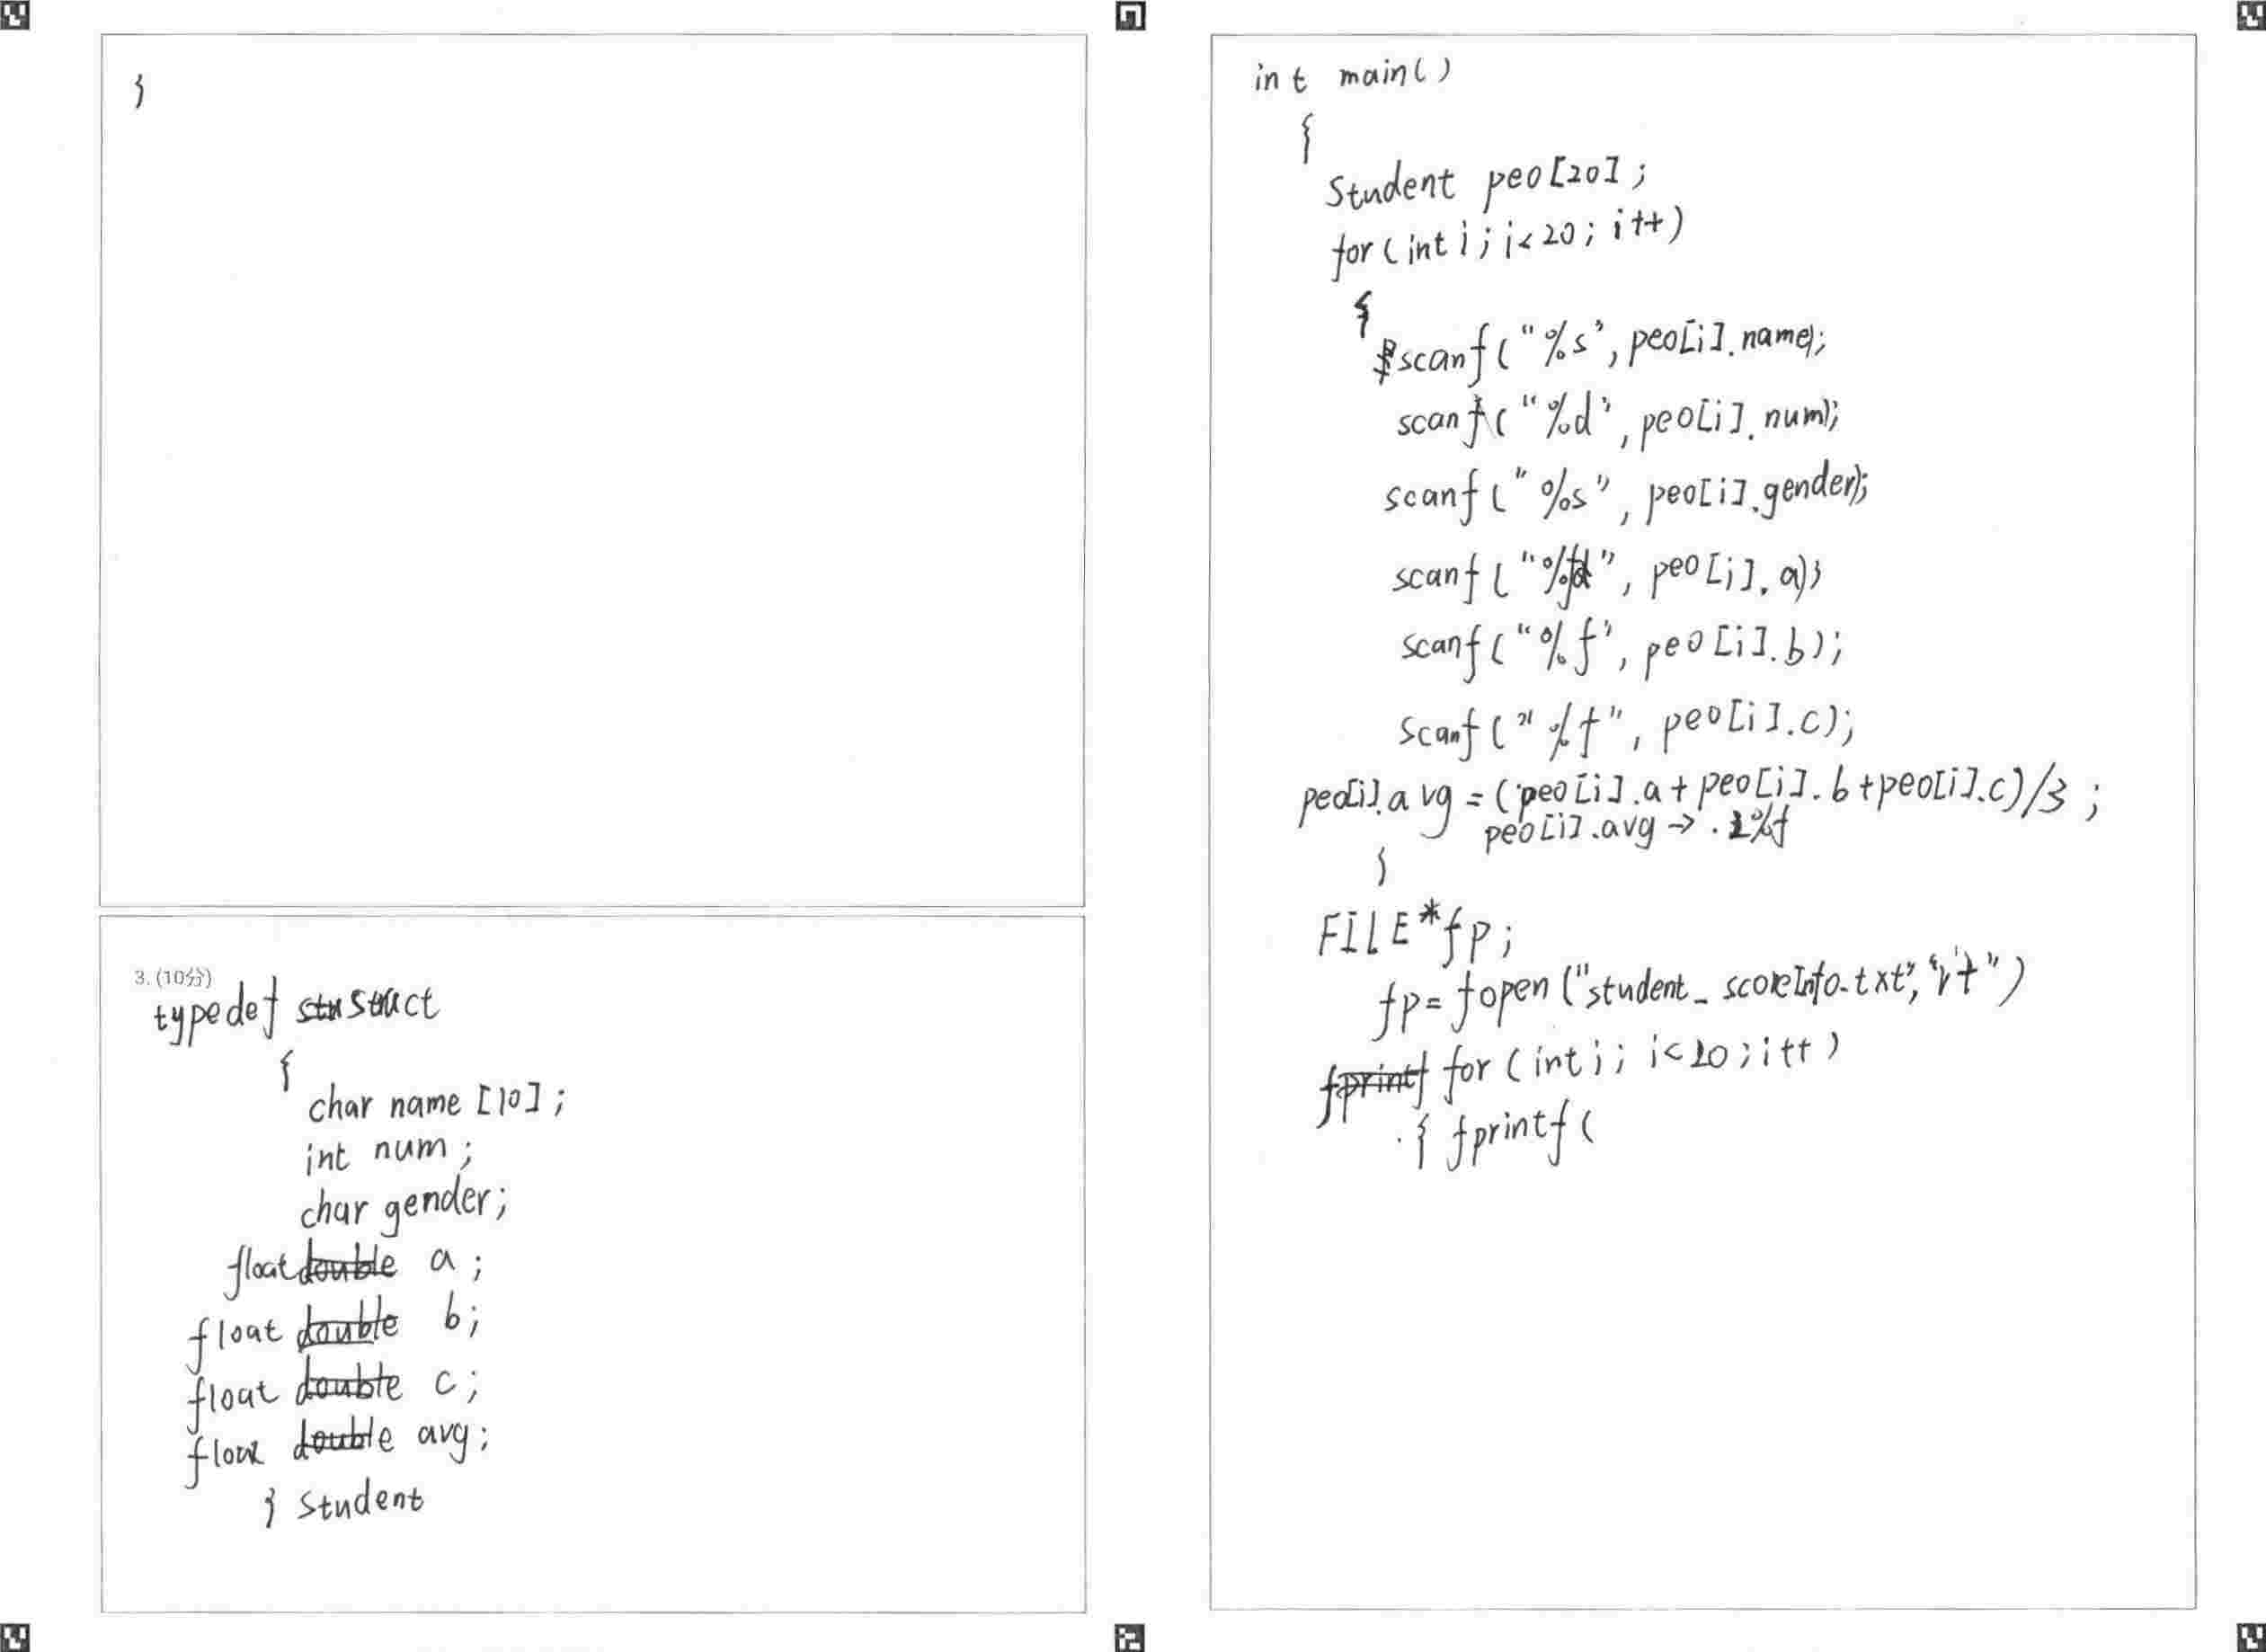 }
3. (10分)
typedef struct
{
char name [10];
int num;
char gender;
float a;
float b;
float c;
float avg;
} Student
int main()
{
Student peo[20];
for(int i; i<20; i++)
{
scanf("%s", peo[i].name);
scanf("%d", peo[i].num);
scanf("%s", peo[i].gender);
scanf("%f", peo[i].a);
scanf("%f", peo[i].b);
scanf("%f", peo[i].c);
peo[i].avg = (peo[i].a+peo[i].b+peo[i].c)/3;
peo[i].avg → .1%f
}
FILE*fp;
fp= fopen("student_scoreInfo.txt","rt")
for (int i; i<20; i++)
{ fprintf(